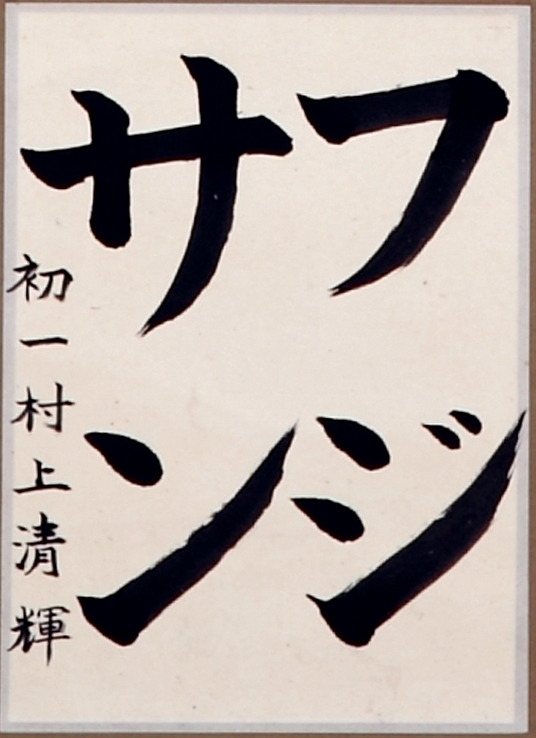 フジ
サン
初一村上清輝